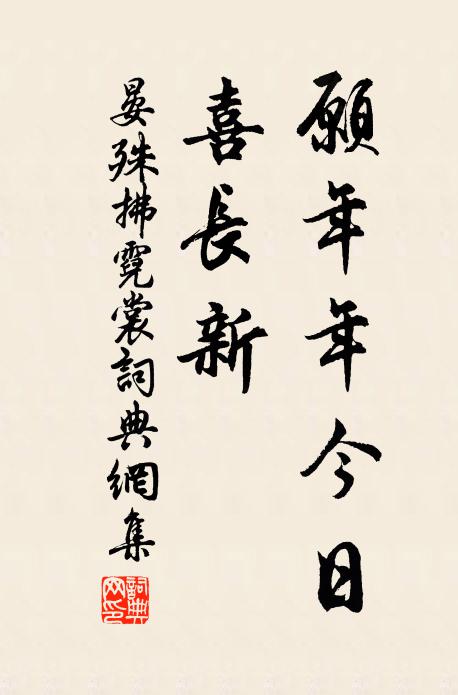 願年年今日
喜長新
晏殊拂霓裳詞典網集
詞典網印